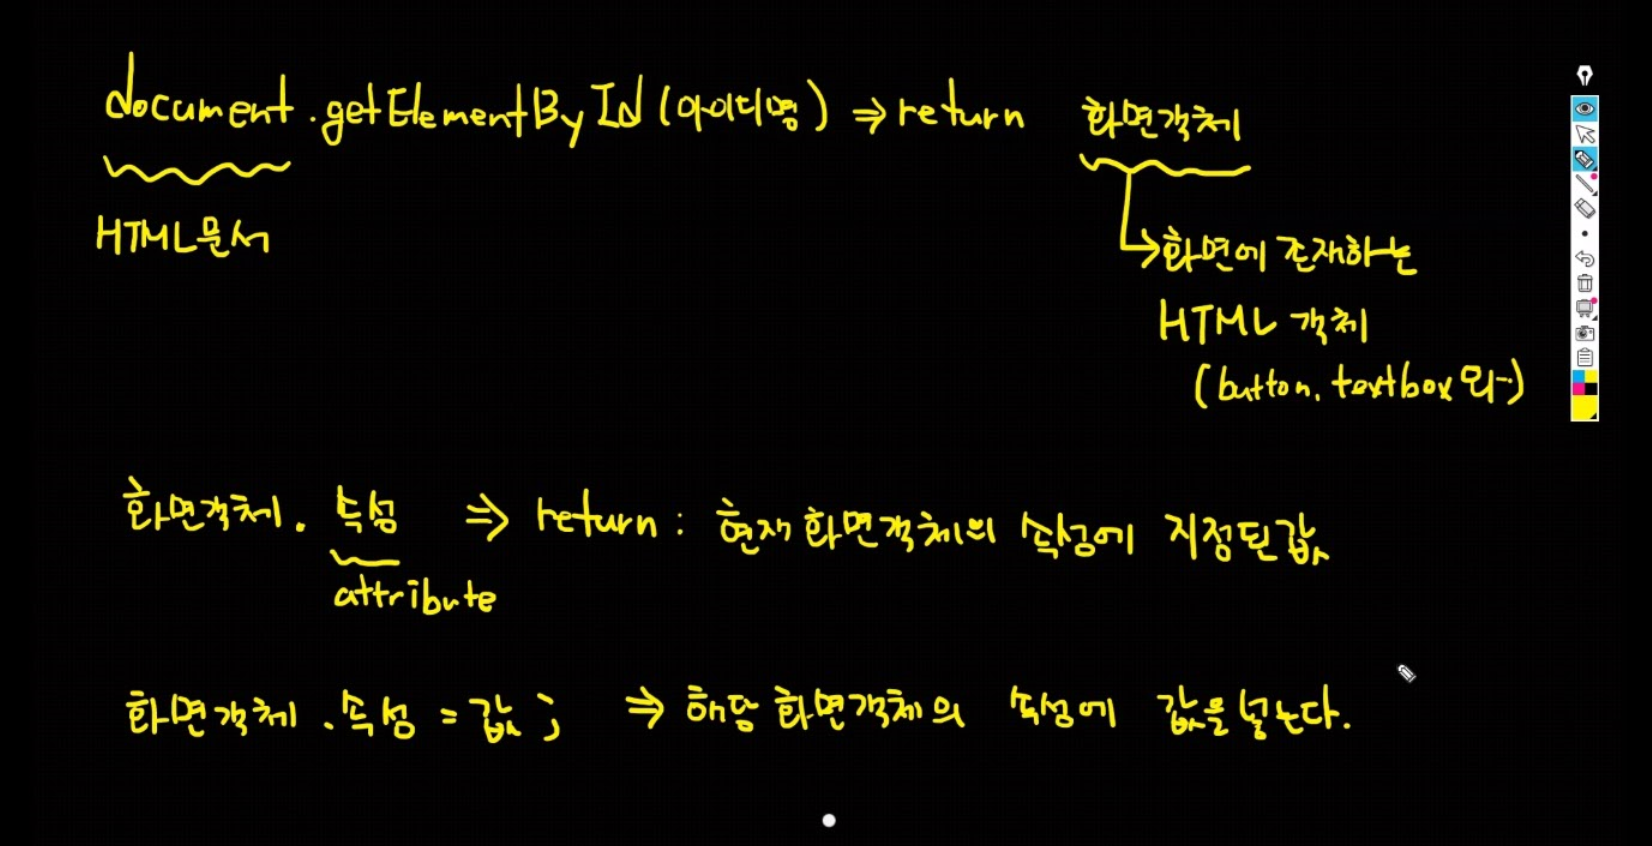 document.getElementById(아이디명) ⇒ return 화면객체
HTML문서
→화면에 존재하는
HTML 객체
(button, textbox 외…)
화면객체. 속성 ⇒ return : 현재 화면객체의 속성에 지정된값
attribute
화면객체.속성 = 값; ⇒ 해당 화면객체의 속성에 값을 넣는다.